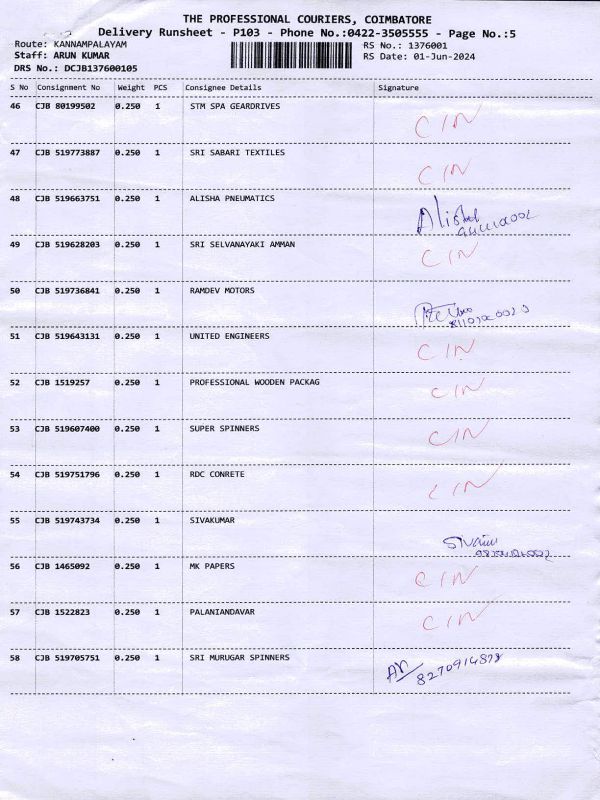 THE PROFESSIONAL COURIERS, COIMBATORE
Delivery Runsheet - P103 - Phone No.:0422-3505555 - Page No.:5
Route: KANNAMPALAYAM RS No.: 1376001
Staff: ARUN KUMAR RS Date: 01-Jun-2024
DRS No.: DCJB137600105
S No Consignment No Weight PCS Consignee Details Signature
46 CJB 80199502 0.250 1 STM SPA GEARDRIVES CIN
47 CJB 519773887 0.250 1 SRI SABARI TEXTILES CIN
48 CJB 519663751 0.250 1 ALISHA PNEUMATICS
49 CJB 519628203 0.250 1 SRI SELVANAYAKI AMMAN CIN
50 CJB 519736841 0.250 1 RAMDEV MOTORS
51 CJB 519643131 0.250 1 UNITED ENGINEERS CIN
52 CJB 1519257 0.250 1 PROFESSIONAL WOODEN PACKAG CIN
53 CJB 519607400 0.250 1 SUPER SPINNERS CIN
54 CJB 519751796 0.250 1 RDC CONRETE CIN
55 CJB 519743734 0.250 1 SIVAKUMAR
56 CJB 1465092 0.250 1 MK PAPERS CIN
57 CJB 1522823 0.250 1 PALANIANDAVAR CIN
58 CJB 519705751 0.250 1 SRI MURUGAR SPINNERS